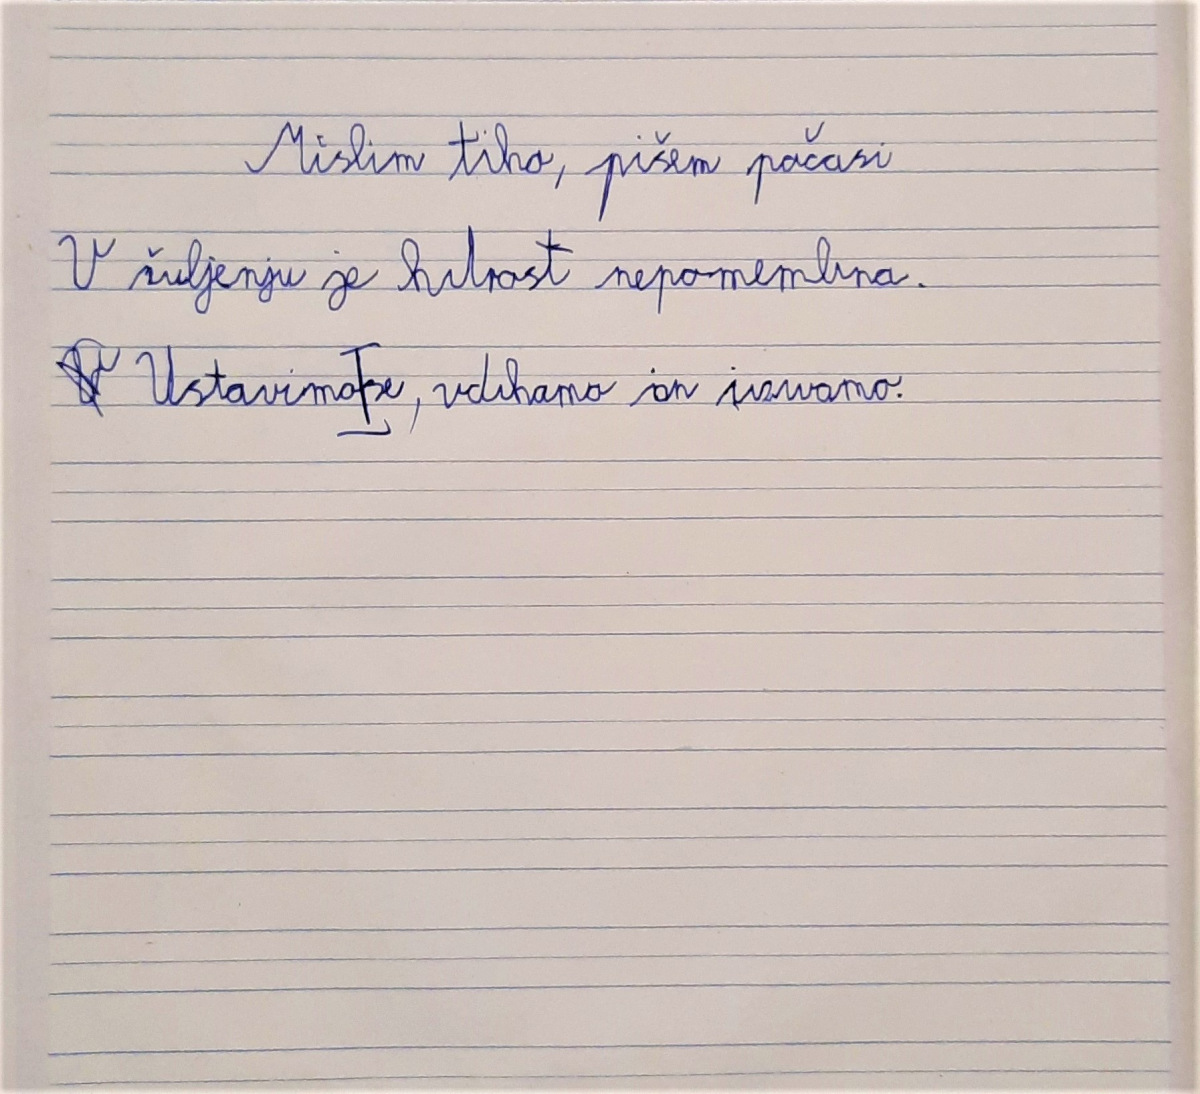 Mislim tiho, pišem počasi
V življenju je hitrost nepomembna.
Ustavimo se, vdihamo in